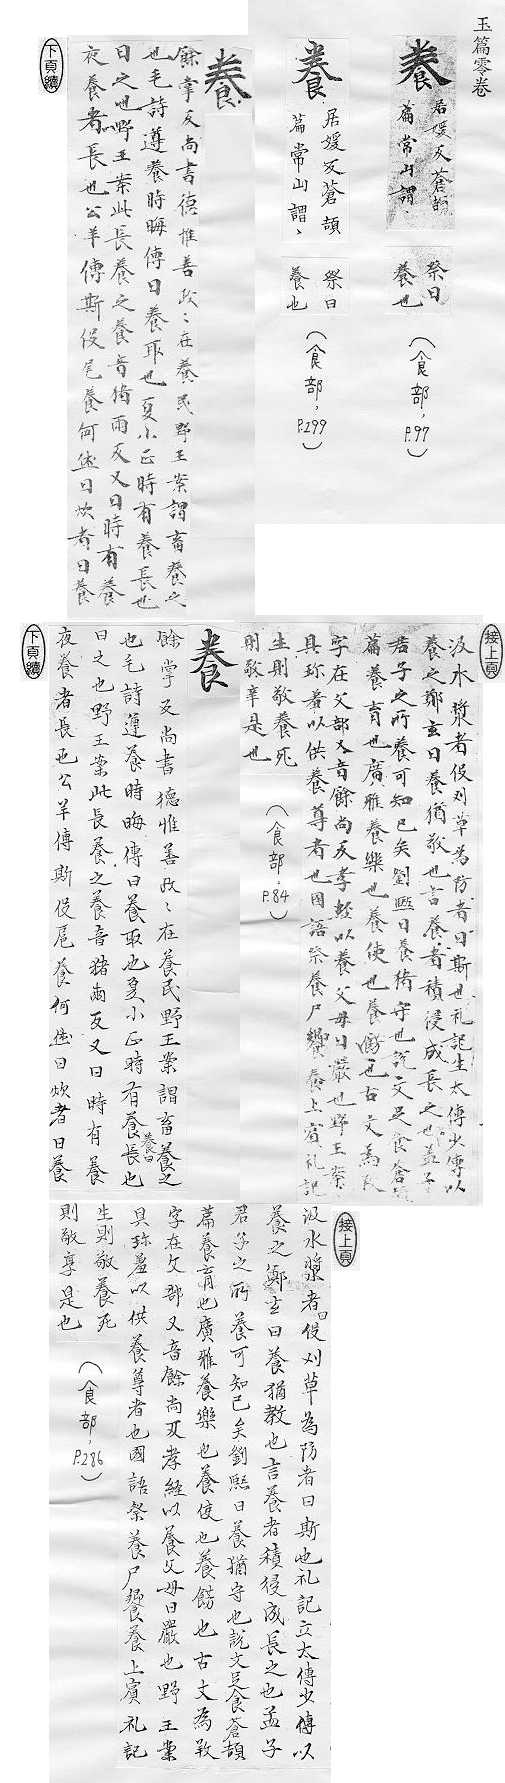 玉篇零卷
養
居媛反蒼頡
篇常山謂〻
祭曰
養也
(食部，P.97)
養
居媛反蒼頡
篇常山謂〻
祭曰
養也
(食部，P.299)
養
餘掌反尚書德惟善政〻在養民野王案謂畜養之
也毛詩遵養時晦傳曰養取也夏小正時有養長也
曰之也野王案此長養之養音猪雨反又曰時有養
夜養者長也公羊傳斯役扈養何休曰炊者曰養
下頁續
接上頁
汲水漿者役刈草為防者曰斯也礼記立太傅少傅以
養之鄭玄曰養猶教也言養者積浸成長之也孟子
君子之所養可知已矣劉熙曰養猶守也說文足食蒼頡
篇養育也廣雅養樂也養使也養餝也古文為𢼝
字在攴部又音餘尚反孝經以養父母日嚴也野王案
具珍羞以供養尊者也國語祭養尸饗養上賓礼記
生則敬養死
則敬享是也
(食部，P.84)
養
餘掌反尚書德惟善政〻在養民野王案謂畜養之
也毛詩遵養時晦傳曰養取也夏小正時有養長也
養曰
曰之也野王案此長養之養音猪雨反又曰時有養
夜養者長也公羊傳斯役扈養何休曰炊者曰養
下頁續
接上頁
汲水漿者曰役刈草為防者曰斯也礼記立太傅少傅以
養之鄭玄曰養猶教也言養者積浸成長之也孟子
君子之所養可知已矣劉熙曰養猶守也說文足食蒼頡
篇養育也廣雅養樂也養使也養餝也古文為𢼝
字在攴部又音餘尚反孝經以養父母日嚴也野王案
具珍羞以供養尊者也國語祭養尸饗養上賓礼記
生則敬養死
則敬享是也
(食部，P.286)